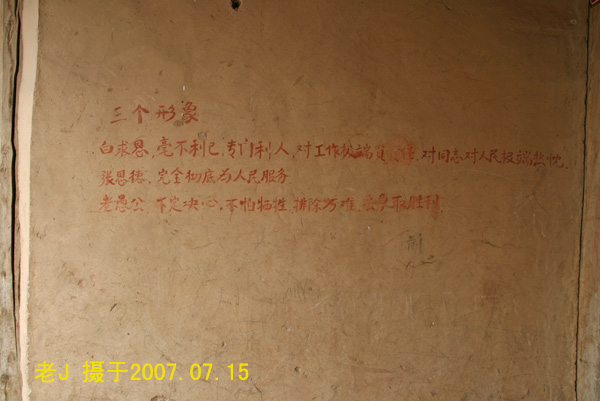 三个形象
白求恩,毫不利己,专门利人,对工作极端负责任,对同志对人民极端热忱.
张思德,完全彻底为人民服务
老愚公,下定决心,不怕牺牲,排除万难,去争取胜利.
老J 摄于2007.07.15